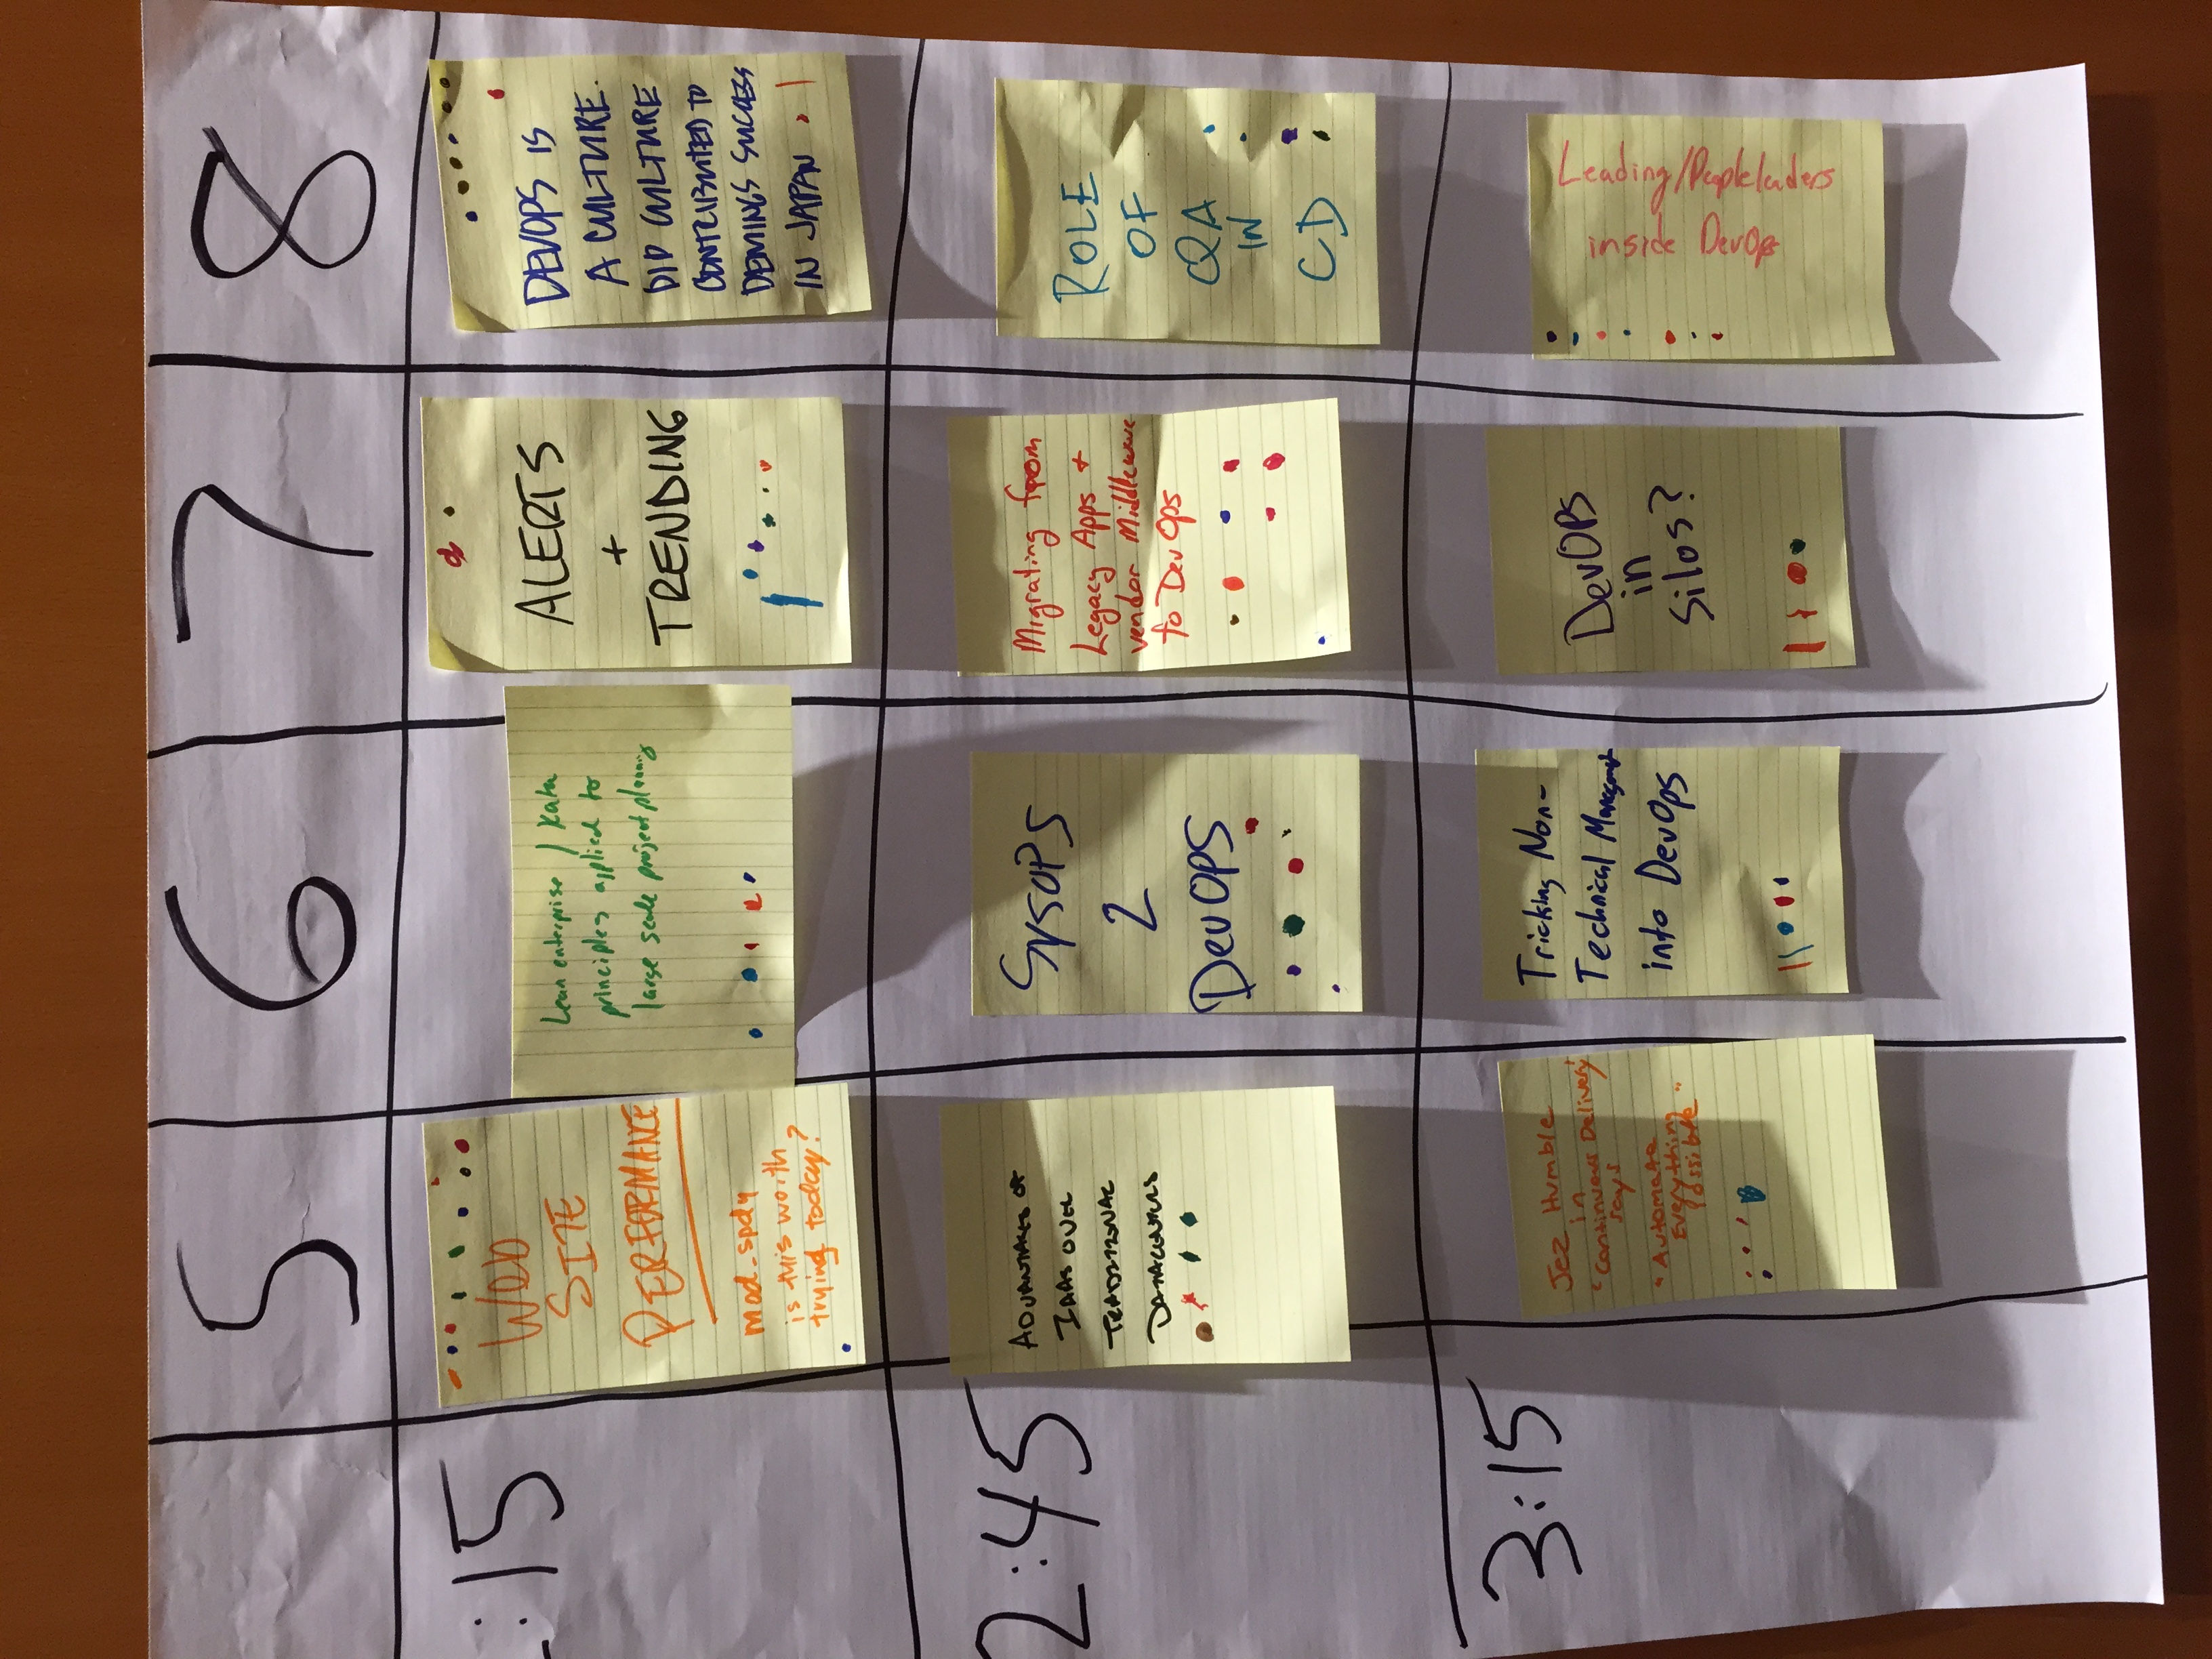 5 6 7 8
:15
Web
SITE
PERFORMANCE
mod_spdy
is this worth
trying today?
Lean enterprise / Kata
principles applied to
large scale project planning
ALERTS
+
TRENDING
DEVOPS IS
A CULTURE.
DID CULTURE
CONTRIBUTED TO
DEMINGS SUCCESS
IN JAPAN
2:45
ADVANTAGES OF
IAAS OVER
TRADITIONAL
DATACENTERS
SYSOPS
2
DevOPS
Migrating from
Legacy Apps +
vendor Middleware
to DevOps
ROLE
OF
QA
IN
CD
3:15
Jez Humble
in
"Continuous Delivery"
says
"Automate
Everything
Possible"
Tricking Non-
Technical Management
into DevOps
DevOPS
in
Silos?
Leading/Peopleleaders
inside DevOps